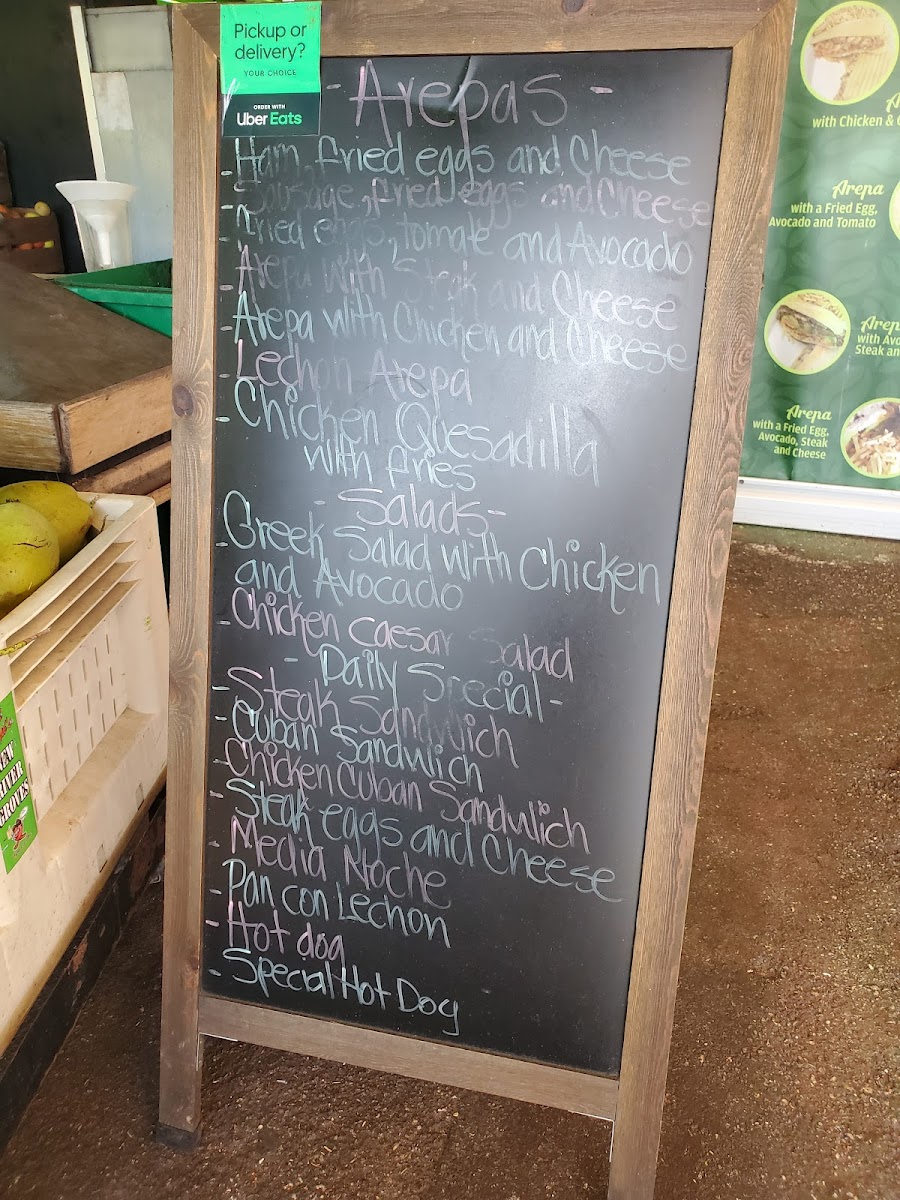 Pickup or
delivery?
YOUR CHOICE
ORDER WITH
Uber Eats
- Arepas -
- Ham, fried eggs and Cheese
- Sausage, fried eggs and Cheese
- Fried eggs, tomate and Avocado
- Arepa with Steak and Cheese
- Arepa with Chicken and Cheese
- Lechon Arepa
- Chicken Quesadilla
with fries
- Salads -
- Greek Salad with Chicken
and Avocado
- Chicken caesar Salad
- Daily Special -
- Steak Sandwich
- Cuban Sandwich
- Chicken Cuban Sandwich
- Steak eggs and Cheese
- Media Noche
- Pan con Lechon
- Hot dog
- Special Hot Dog
with Chicken &
Arepa
with a Fried Egg,
Avocado and Tomato
Steak
Arepa
with a Fried Egg,
Avocado, Steak
and Cheese
RIVER
GROVES